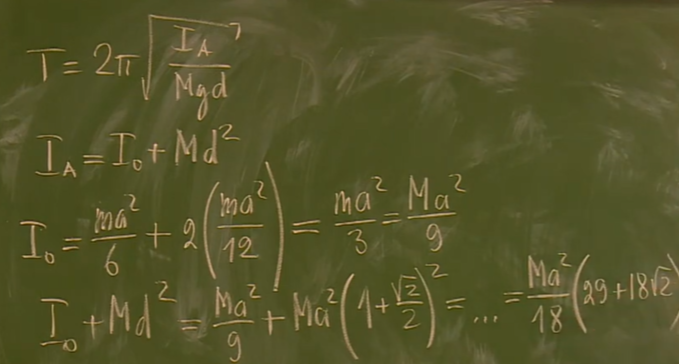 T = 2π√(I_A/Mgd)
I_A = I_0 + Md²
I_0 = ma²/6 + 2(ma²/12) = ma²/3 = Ma²/9
I_0 + Md² = Ma²/9 + Ma²(1 + √2/2)² = ... = Ma²/18(29 + 18√2)